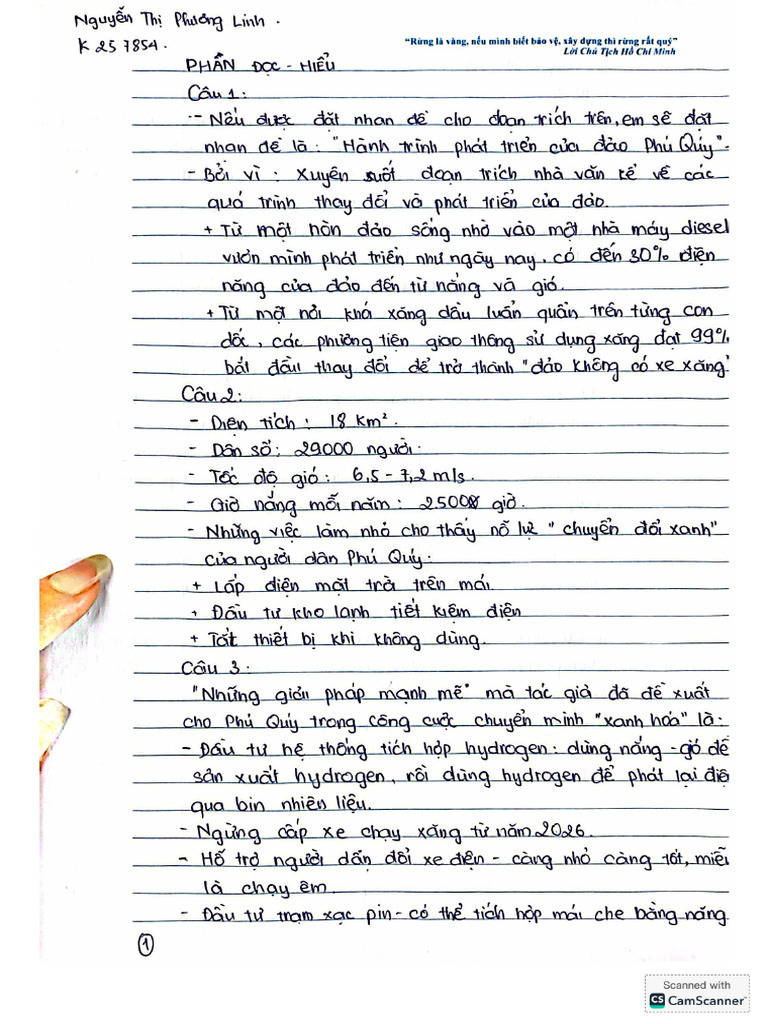 Nguyễn Thị Phương Linh.
K257854.
"Rừng là vàng, nếu mình biết bảo vệ, xây dựng thì rừng rất quý"
Lời Chủ Tịch Hồ Chí Minh
PHẦN ĐỌC - HIỂU
Câu 1:
- Nếu được đặt nhan đề cho đoạn trích trên, em sẽ đặt
nhan đề là: "Hành trình phát triển của đảo Phú Quý".
- Bởi vì: Xuyên suốt đoạn trích nhà văn kể về các
quá trình thay đổi và phát triển của đảo.
+ Từ một hòn đảo sống nhờ vào một nhà máy diesel
vươn mình phát triển như ngày nay, có đến 30% điện
năng của đảo đến từ nắng và gió.
+ Từ một nơi khá xăng dầu luẩn quẩn trên từng con
dốc, các phương tiện giao thông sử dụng xăng đạt 99%
bắt đầu thay đổi để trở thành "đảo không có xe xăng".
Câu 2:
- Diện tích: 18 km².
- Dân số: 29000 người.
- Tốc độ gió: 6,5 - 7,2 m/s.
- Giờ nắng mỗi năm: 2500 giờ.
- Những việc làm nhỏ cho thấy nỗ lực "chuyển đổi xanh"
của người dân Phú Quý:
+ Lắp điện mặt trời trên mái.
+ Đầu tư kho lạnh tiết kiệm điện
+ Tắt thiết bị khi không dùng.
Câu 3:
"Những giải pháp mạnh mẽ" mà tác giả đã đề xuất
cho Phú Quý trong công cuộc chuyển mình "xanh hoá" là:
- Đầu tư hệ thống tích hợp hydrogen: dùng nắng - gió để
sản xuất hydrogen, rồi dùng hydrogen để phát lại điệ
qua bin nhiên liệu.
- Ngừng cấp xe chạy xăng từ năm 2026.
- Hỗ trợ người dân đổi xe điện - càng nhỏ càng tốt, miễ
là chạy êm.
- Đầu tư trạm xạc pin - có thể tích hợp mái che bằng năng
1
Scanned with
CS CamScanner